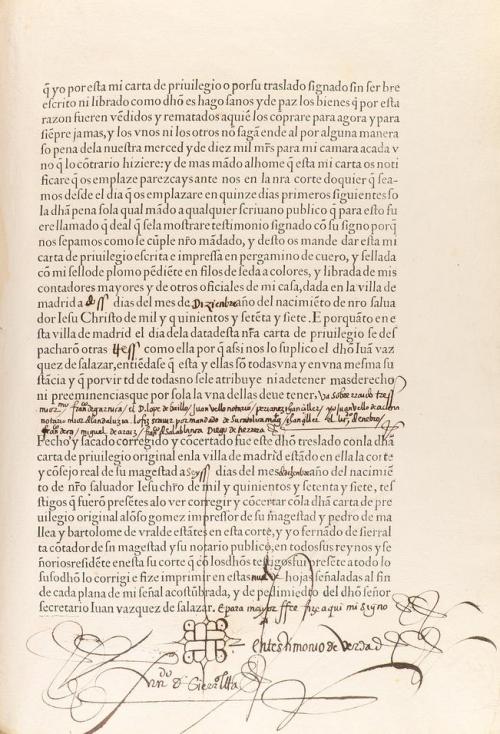 q̃ yo por esta mi carta de priuilegio o por su traslado signado sin ser bre
escrito ni librado como dhõ es hago sanos y de paz los bienes q̃ por esta
razon fueren vẽdidos y rematados a quiẽ los cõprare para agora y para
siẽpre jamas, y los vnos ni los otros nõ fagã ende al por alguna manera
so pena dela nuestra merced y de diez mil mr̃s para mi camara a cada v
no q̃ lo cõtrario hiziere: y de mas mãdo al home q̃ esta mi carta os noti
ficare q̃ os emplaze parezcays ante nos en la nr̃a corte do quier q̃ sea-
mos desde el dia q̃ os emplazare en quinze dias primeros siguientes so
la dhã pena so la qual mãdo a qualquier scriuano publico q̃ para esto fu
ere llamado q̃ de al q̃ se la mostrare testimonio signado cõ su signo porq̃
nos sepamos como se cũple nr̃o mãdado, y desto os mande dar esta mi
carta de priuilegio escrita e impressa en pergamino de cuero, y sellada
cõ mi sello de plomo pẽdiẽte en filos de seda a colores, y librada de mis
contadores mayores y de otros oficiales de mi casa, dada en la villa de
madrid a dias del mes de Dizienbre año del nacimiẽto de nr̃o salua
dor Iesu Christo de mil y quinientos y setẽta y siete. E porquãto en e
sta villa de madrid el dia dela data desta nr̃a carta de priuilegio se des
pacharõ otras como ella por q̃ assi nos lo suplico el dhõ Iuã vaz
quez de salazar, entiẽdase q̃ esta y ellas sõ todas vna y en vna mesma su
stãcia y q̃ por virtd de todas no se le atribuye ni adeter mas derecho
ni preeminencias que por sola la vna dellas deue tener,
Fecho y sacado corregido y cõcertado fue este dhõ treslado con la dhã
carta de priuilegio original en la villa de madrid estãdo en ella la corte
y cõsejo real de su magestad a seys dias del mes de dizienbre año del nacimiẽ
to de nr̃o saluador Iesu chr̃o de mil y quinientos y setenta y siete, tes
stigos q̃ fuerõ presẽtes a lo ver corregir y cõcertar cõ la dhã carta de pre
uilegio original alõso gomez impressor de su magestad y pedro de ma
llea y bartolome de vralde estãtes en esta corte, y yo fernãdo de sierral
ta cõtador de su magestad y su notario publico, en todos sus reynos y se
ñorios residẽte en esta su corte q̃ cõ los dhõs testigos fuy presẽte a todo lo
suso dhõ lo corregi e fize imprimir en estas hojas señaladas al fin
de cada plana de mi señal acostũbrada, y de pedimiẽto del dhõ señor
secretario Iuan vazquez de salazar. E para mayor ffee fize aqui mi signo
en testimonio de verdad